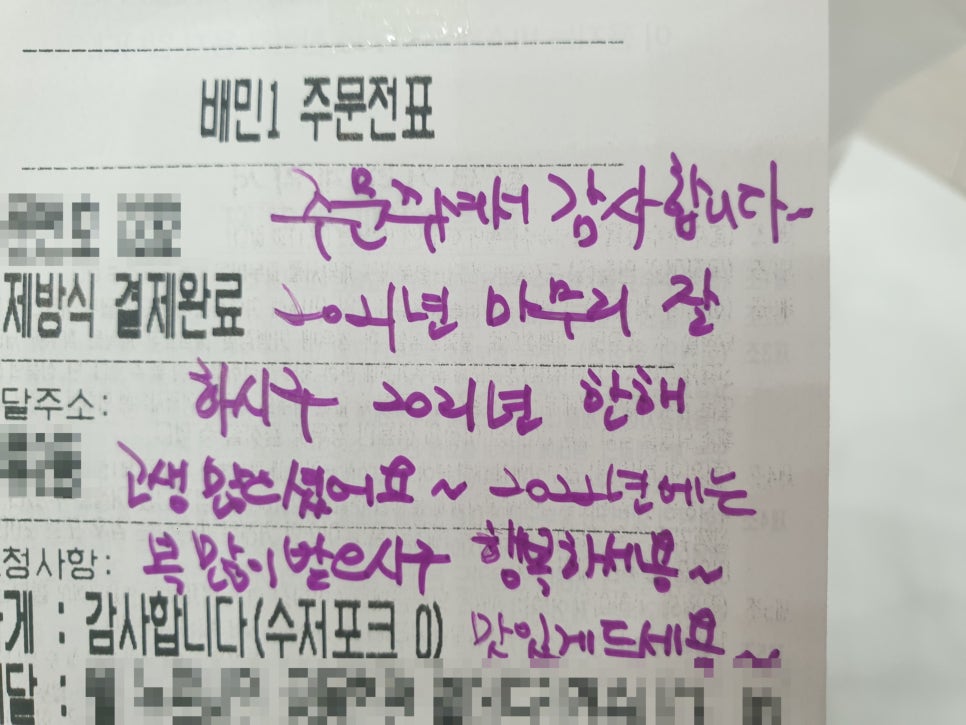 배민1 주문전표
주문주셔서 감사합니다~
제방식 결제완료
2021년 마무리 잘
달주소:
하시구 2021년 한해
고생 많으셨어요~ 2022년에는
청사항:
복 많이받으시구 행복하세용~
게 : 감사합니다(수저포크 O)
맛있게드세요~
달 :